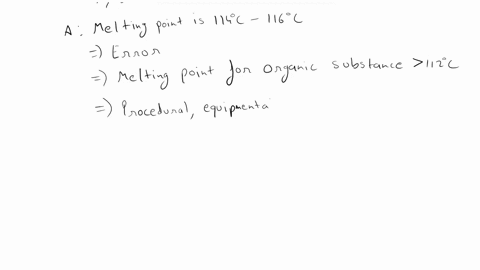 A: Melting point is 114°C - 116°C
=) Error
=) Melting point for organic substance >112°C
=) Procedural, equipmenta